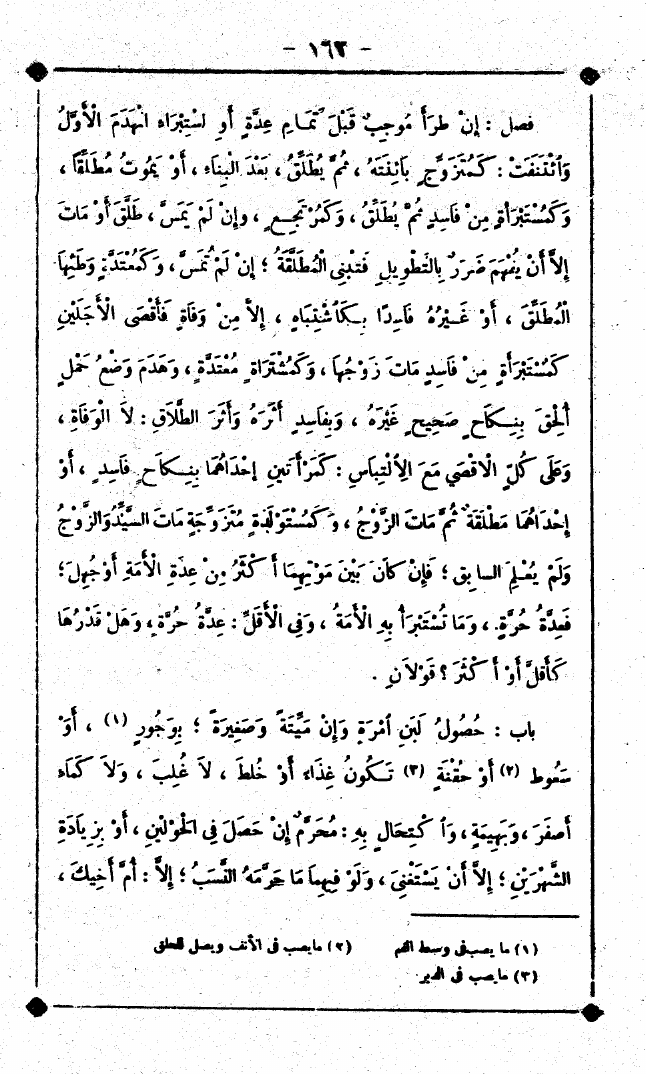 - ١٦٣ -
فصل : إِنْ طَرَأَ مُوجِبٌ قَبْلَ تَمَامِ عِدَّةٍ أَوِ اسْتِبْرَاءِ انْهَدَمَ الْأَوَّلُ
وَأْتَنَفَتْ : كَمُتَزَوِّجٍ بَائِنَتَهُ ، ثُمَّ يُطَلِّقُ ، بَعْدَ الْبِنَاءِ ، أَوْ يَمُوتُ مُطْلَقًا ،
وَكَمُسْتَبْرَأَةٍ مِنْ فَاسِدٍ ثُمَّ يُطَلِّقُ ، وَكَمُرْتَجِعٍ ، وإِنْ لَمْ يَمَسَّ ، طَلَّقَ أَوْ مَاتَ
إِلاَّ أَنْ يُفْهَمَ ضَرَرٌ بِالتَّطْوِيلِ فَتَبْنِى الْمُطَلَّقَةُ ؛ إِنْ لَمْ تُمَسَّ ، وَكَمُعْتَدَّةٍ وَطِئَهَا
الْمُطَلِّقُ ، أَوْ غَيْرُهُ فَاسِدًا بِكَاشْتِبَاهٍ ، إِلاَّ مِنْ وَفَاةٍ فَأَقْصَى الْأَجَلَيْنِ
كَمُسْتَبْرَأَةٍ مِنْ فَاسِدٍ مَاتَ زَوْجُهَا ، وَكَمُشْتَرَاةٍ مُعْتَدَّةٍ ، وَهَدَمَ وَضْعُ حَمْلٍ
أُلْحِقَ بِنِكَاحٍ صَحِيحٍ غَيْرَهُ ، وَبِفَاسِدٍ أَثَرَهُ وَأَثَرَ الطَّلَاقِ : لَا الْوَفَاةِ ،
وَعَلَى كُلٍّ الْاقْصَى مَعَ الِالْتِبَاسِ : كَمَرْأَتَينِ إِحْدَاهُمَا بِنِكَاحٍ فَاسِدٍ ، أَوْ
إِحْدَاهُمَا مُطَلَّقَةٌ ثُمَّ مَاتَ الزَّوْجُ ، وَكَمُسْتَوْلَدَةٍ مُتَزَوِّجَةٍ مَاتَ السَّيِّدُ وَالزَّوْجُ
وَلَمْ يُعْلَمِ السابِق ؛ فَإِنْ كاَنَ بَيْنَ مَوْتِهِمَا أَكْثَرُ مِنْ عِدَّةِ الْأَمَةِ أَوْ جُهِلَ ؛
فَعِدَّةُ حُرَّةٍ ، وَمَا تُسْتَبْرَأُ بِهِ الْأَمَةُ ، وَفِى الْأَقَلِّ : عِدَّةُ حُرَّةٍ ، وَهَلْ قَدْرُهَا
كَأَقَلَّ أَوْ أَكْثَرَ ؟ قَوْلَانِ .
باب : حُصُولُ لَبَنِ امْرَةٍ وَإِنْ مَيِّتَةً وَصَغِيرَةً ؛ بِوَجُورٍ (١) ، أَوْ
سَعُوط (٢) أَوْ حُقْنَةٍ (٣) تَكُونُ غِذَاءً أَوْ خُلِطَ ، لاَ غُلِبَ ، وَلاَ كَمَاءٍ
أَصْفَرَ ، وَبَهِيمَةٍ ، وَاكْتِحَالٍ بِهِ : مُحَرِّمٌ إِنْ حَصَلَ فِى الْحَوْلَيْنِ ، أَوْ بِزِيَادَةِ
الشَّهْرَيْنِ ؛ إِلاَّ أَنْ يَسْتَغْنِىَ ، وَلَوْ فِيهِمَا مَا حَرَّمَهُ النَّسَبُ ؛ إِلاَّ : أُمَّ أَخِيكَ ،
(١) ما يصب فى وسط الفم (٢) ما يصب فى الأنف ويصل للحلق
(٣) ما يصب فى الدبر